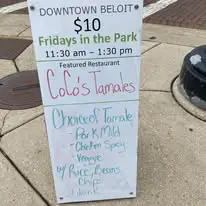 DOWNTOWN BELOIT
$10
Fridays in the Park
11:30 am - 1:30 pm
Featured Restaurant
CoCo's Tamales
Choice of Tamale
- Pork Mild
- Chicken Spicy
- Veggie
w/ Rice, Beans,
Chips